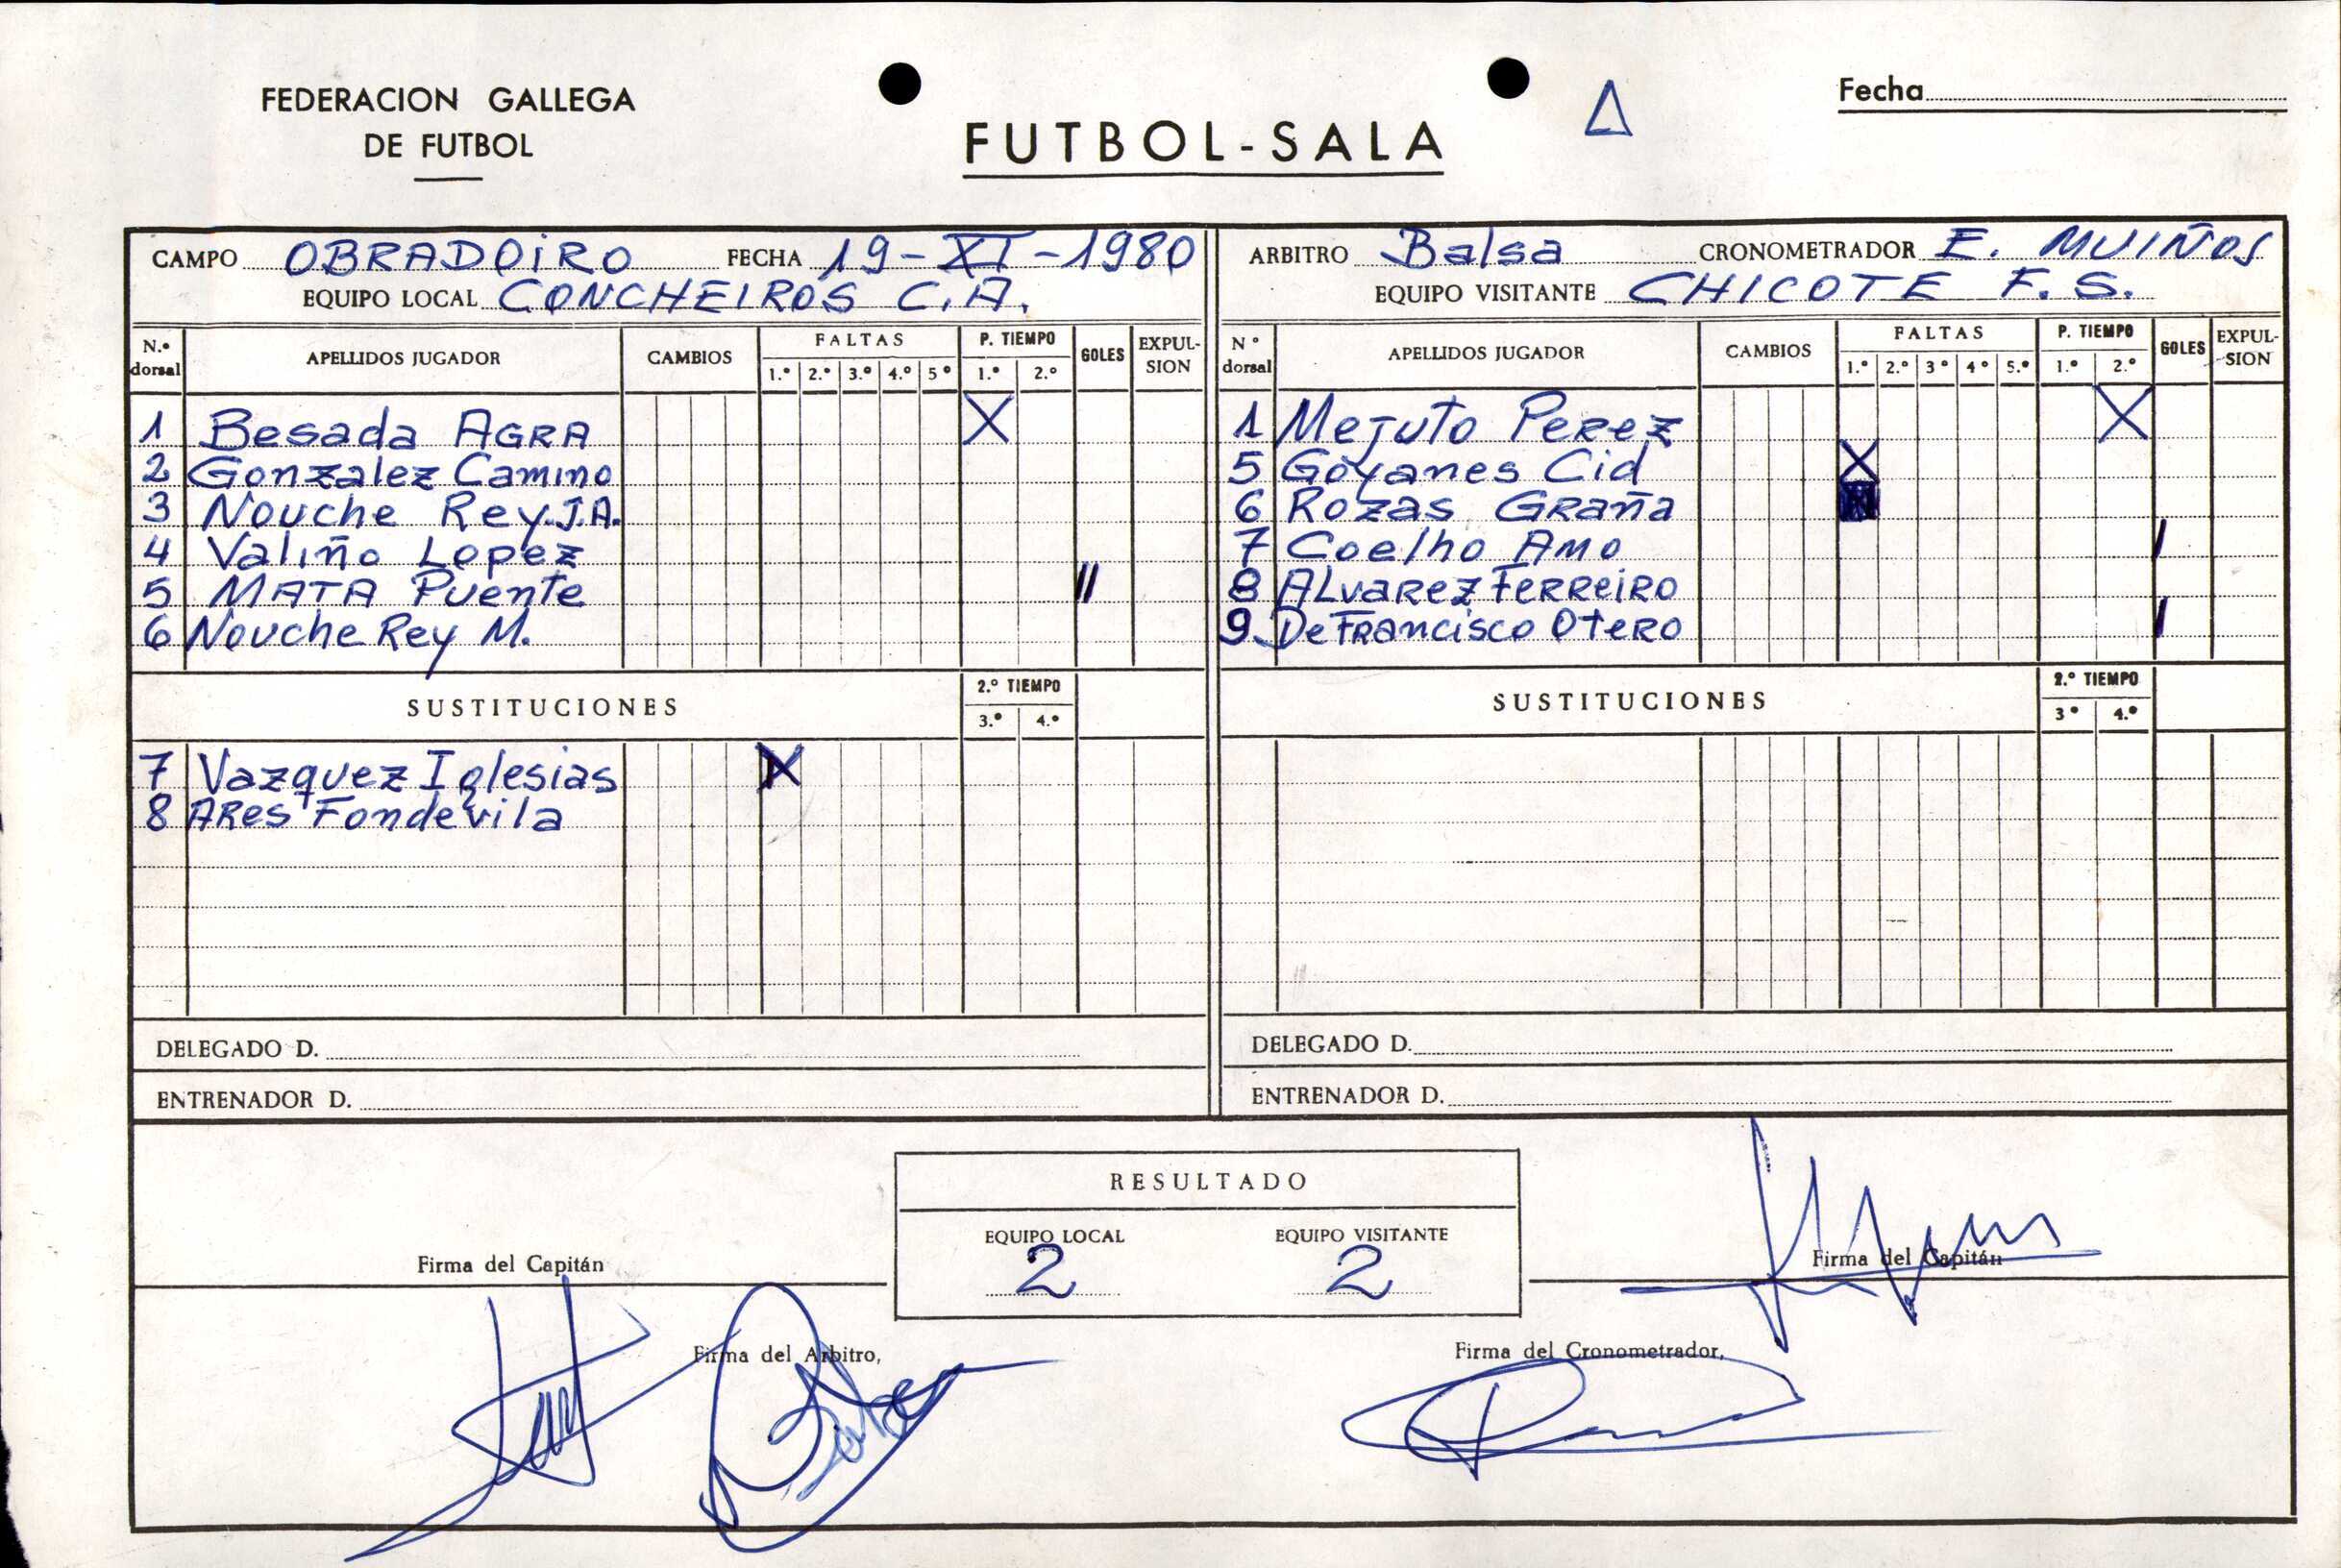 FEDERACION GALLEGA
DE FUTBOL
FUTBOL-SALA
Δ
Fecha
CAMPO OBRADOIRO FECHA 19-XI-1980
EQUIPO LOCAL CONCHEIROS C.A.
ARBITRO Balsa CRONOMETRADOR E. MUIÑOS
EQUIPO VISITANTE CHICOTE F.S.
N.º dorsal APELLIDOS JUGADOR CAMBIOS FALTAS 1.º 2.º 3.º 4.º 5º P. TIEMPO 1.º 2.º GOLES EXPUL-SION
1 Besada AGRA X
2 Gonzalez Camino
3 Nouche Rey J.A.
4 Valiño Lopez
5 MATA Puente II
6 Nouche Rey M.
SUSTITUCIONES 2.º TIEMPO 3.º 4.º
7 Vazquez Iglesias X
8 ARes Fondevila
DELEGADO D.
ENTRENADOR D.
Nº dorsal APELLIDOS JUGADOR CAMBIOS FALTAS 1.º 2.º 3º 4º 5.º P. TIEMPO 1.º 2.º GOLES EXPUL-SION
1 Mejuto Perez X
5 Goyanes Cid X
6 Rozas Graña
7 Coelho Amo I
8 ALvarez Ferreiro
9 De Francisco Otero I
SUSTITUCIONES 2.º TIEMPO 3º 4.º
DELEGADO D.
ENTRENADOR D.
RESULTADO
EQUIPO LOCAL EQUIPO VISITANTE
2 2
Firma del Capitán
Firma del Capitán
Firma del Arbitro,
Firma del Cronometrador,